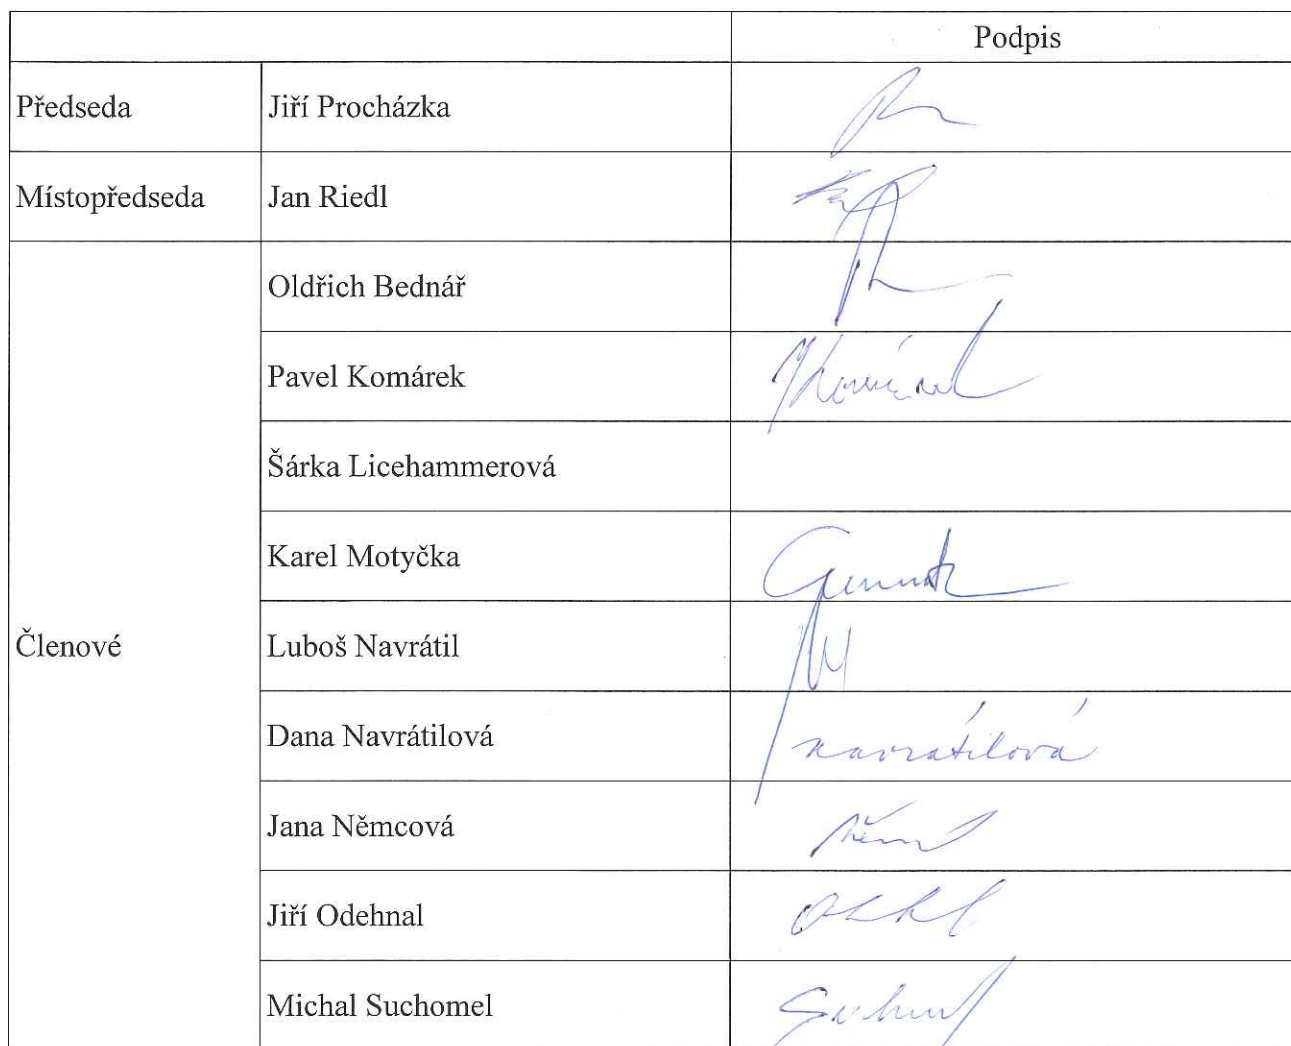 Podpis
Předseda Jiří Procházka
Místopředseda Jan Riedl
Oldřich Bednář
Pavel Komárek
Šárka Licehammerová
Karel Motyčka
Členové Luboš Navrátil
Dana Navrátilová Navrátilová
Jana Němcová
Jiří Odehnal
Michal Suchomel